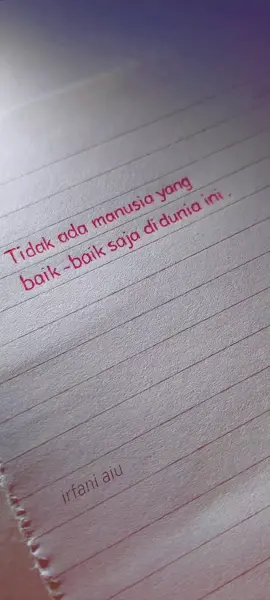 Tidak ada manusia yang
baik-baik saja didunia ini.
irfani aiu